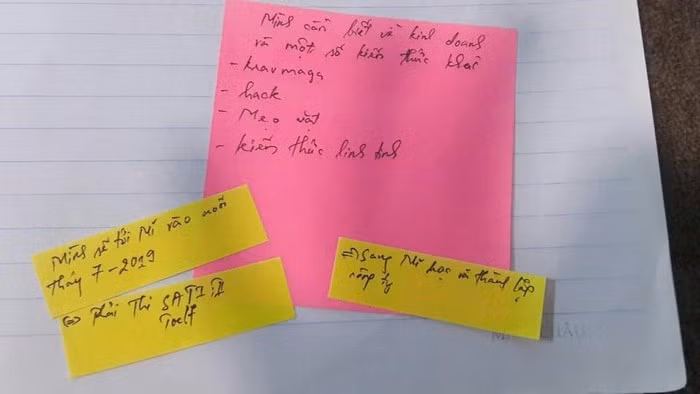 Mình cần biết về kinh doanh
và một số kiến thức khác
- kravmaga
- hack
- Mẹo vặt
- kiến thức linh tinh
Mình sẽ tới Mĩ vào
tháng 7-2019
<=> Phải Thi SAT I, II
Toelf
=> Sang Mĩ học và thành lập
công ty